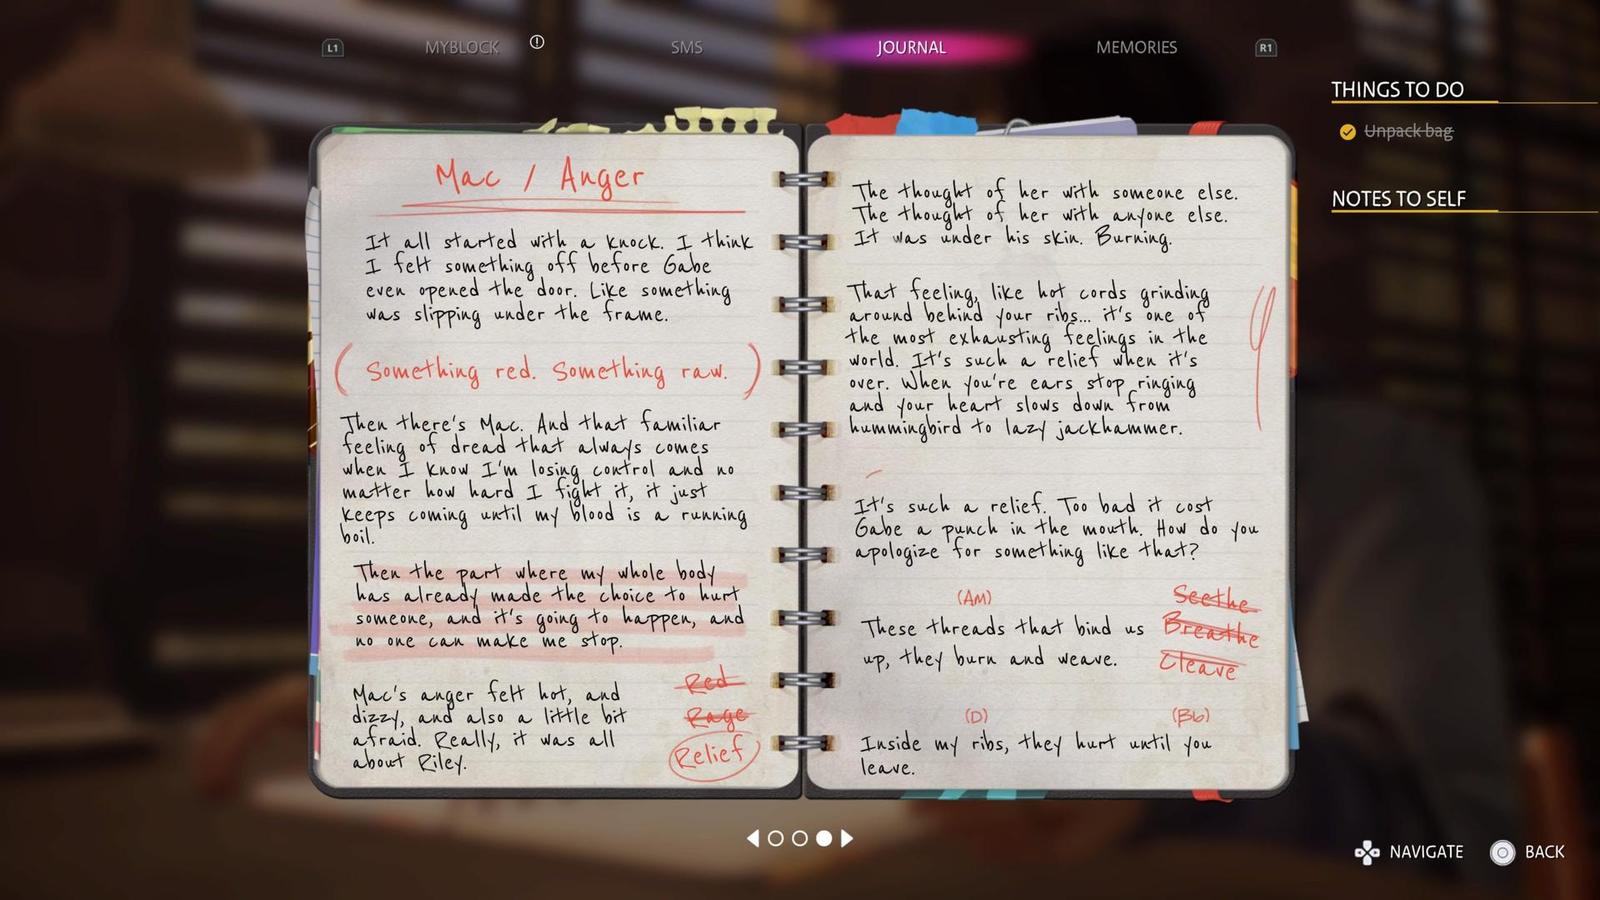 L1
MYBLOCK
SMS
JOURNAL
MEMORIES
R1
THINGS TO DO
Unpack bag
NOTES TO SELF
Mac / Anger
It all started with a knock. I think
I felt something off before Gabe
even opened the door. Like something
was slipping under the frame.
(Something red. Something raw.)
Then there's Mac. And that familiar
feeling of dread that always comes
when I know I'm losing control and no
matter how hard I fight it, it just
keeps coming until my blood is a running
boil.
Then the part where my whole body
has already made the choice to hurt
someone, and it's going to happen, and
no one can make me stop.
Mac's anger felt hot, and
dizzy, and also a little bit
afraid. Really, it was all
about Riley.
Red
Rage
Relief
The thought of her with someone else.
The thought of her with anyone else.
It was under his skin. Burning.
That feeling, like hot cords grinding
around behind your ribs... it's one of
the most exhausting feelings in the
world. It's such a relief when it's
over. When you're ears stop ringing
and your heart slows down from
hummingbird to lazy jackhammer.
It's such a relief. Too bad it cost
Gabe a punch in the mouth. How do you
apologize for something like that?
(Am)
These threads that bind us
up, they burn and weave.
Seethe
Breathe
Cleave
(D)
(Bb)
Inside my ribs, they hurt until you
leave.
NAVIGATE
BACK